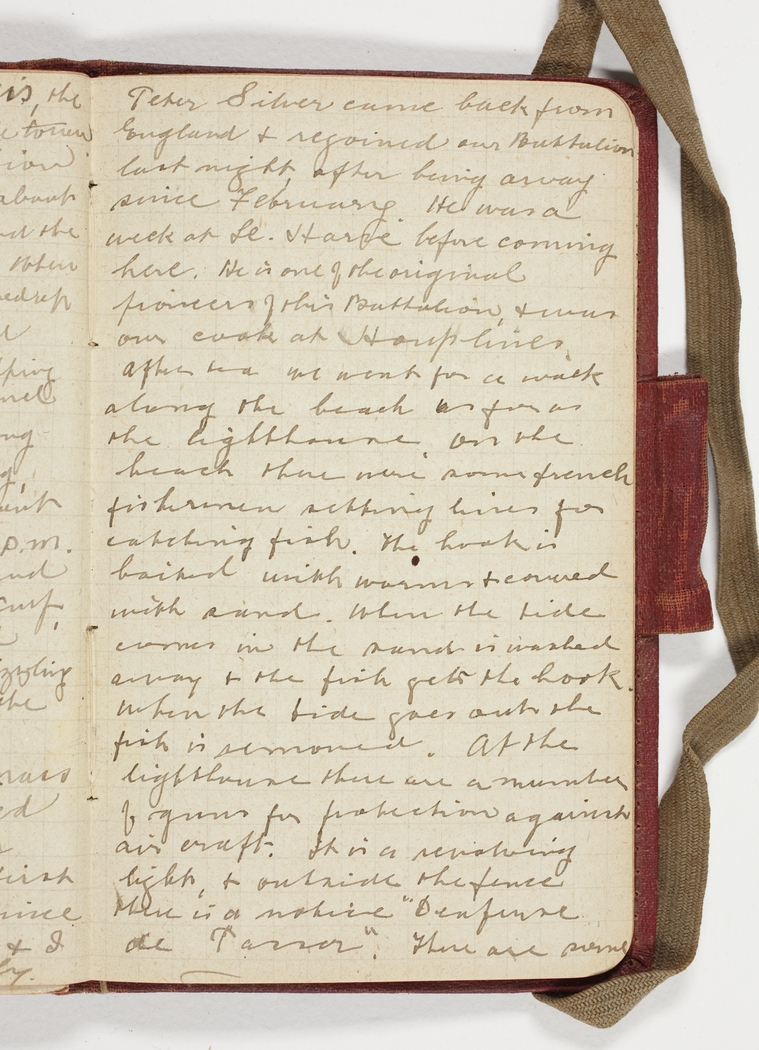 is, the
e town
tion
about
nd the
When
d
pping
nel
ng
g,
p.m.
and
surf,
izzling
the
ed
first
since
& I
Peter Silver came back from
England & rejoined our Battalion
last night, after being away
since February. He was a
week at Le. Harve before coming
here. He is one of the original
pioneers of this Battalion, & was
our cook at Houplines.
After tea we went for a walk
along the beach as far as
the lighthouse. On the
beach there were some french
fishermen setting lines for
catching fish. The hook is
baited with worms & covered
with sand. When the tide
comes in the sand is washed
away & the fish gets the hook.
When the tide goes out the
fish is removed. At the
lighthouse there are a number
of guns for protection against
air craft. It is a revolving
light, & outside the fence
there is a notice "Denfense
de Passer". There are some